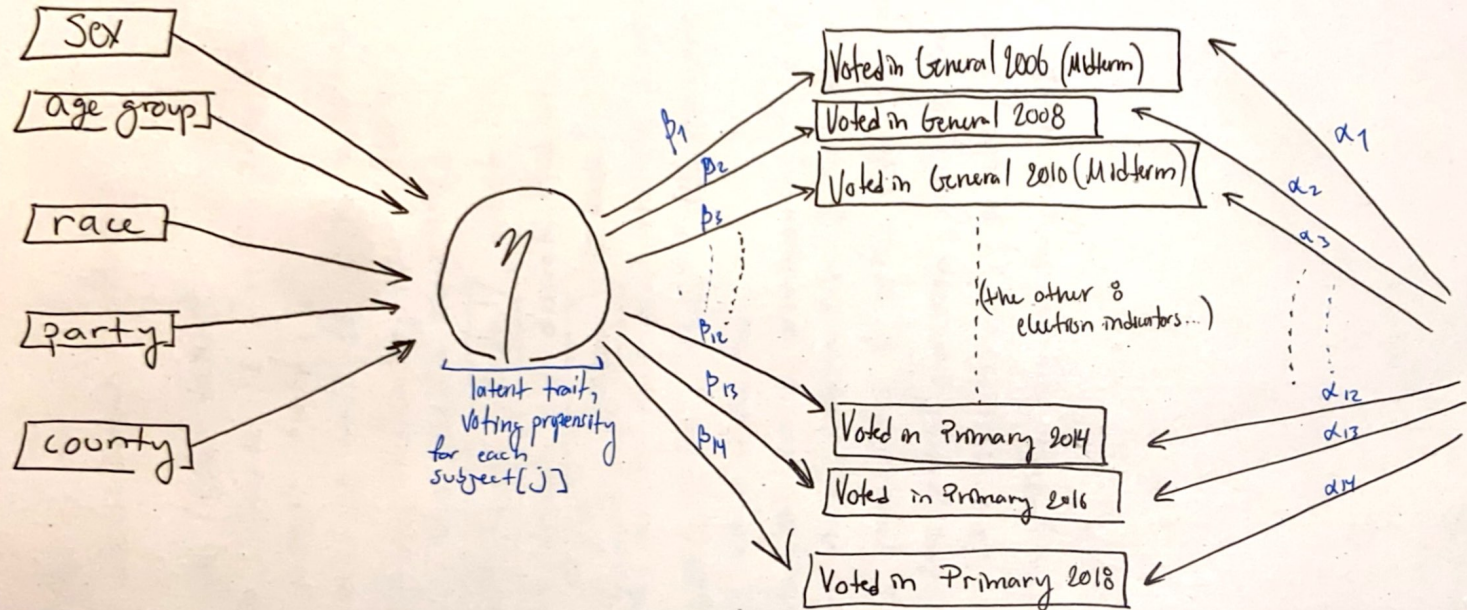 Sex
age group
race
party
county
η
latent trait,
voting propensity
for each
subject[j]
β1
β2
β3
β12
β13
β14
Voted in General 2006 (Midterm)
Voted in General 2008
Voted in General 2010 (Midterm)
(the other 8
election indicators...)
Voted in Primary 2014
Voted in Primary 2016
Voted in Primary 2018
α1
α2
α3
α12
α13
α14